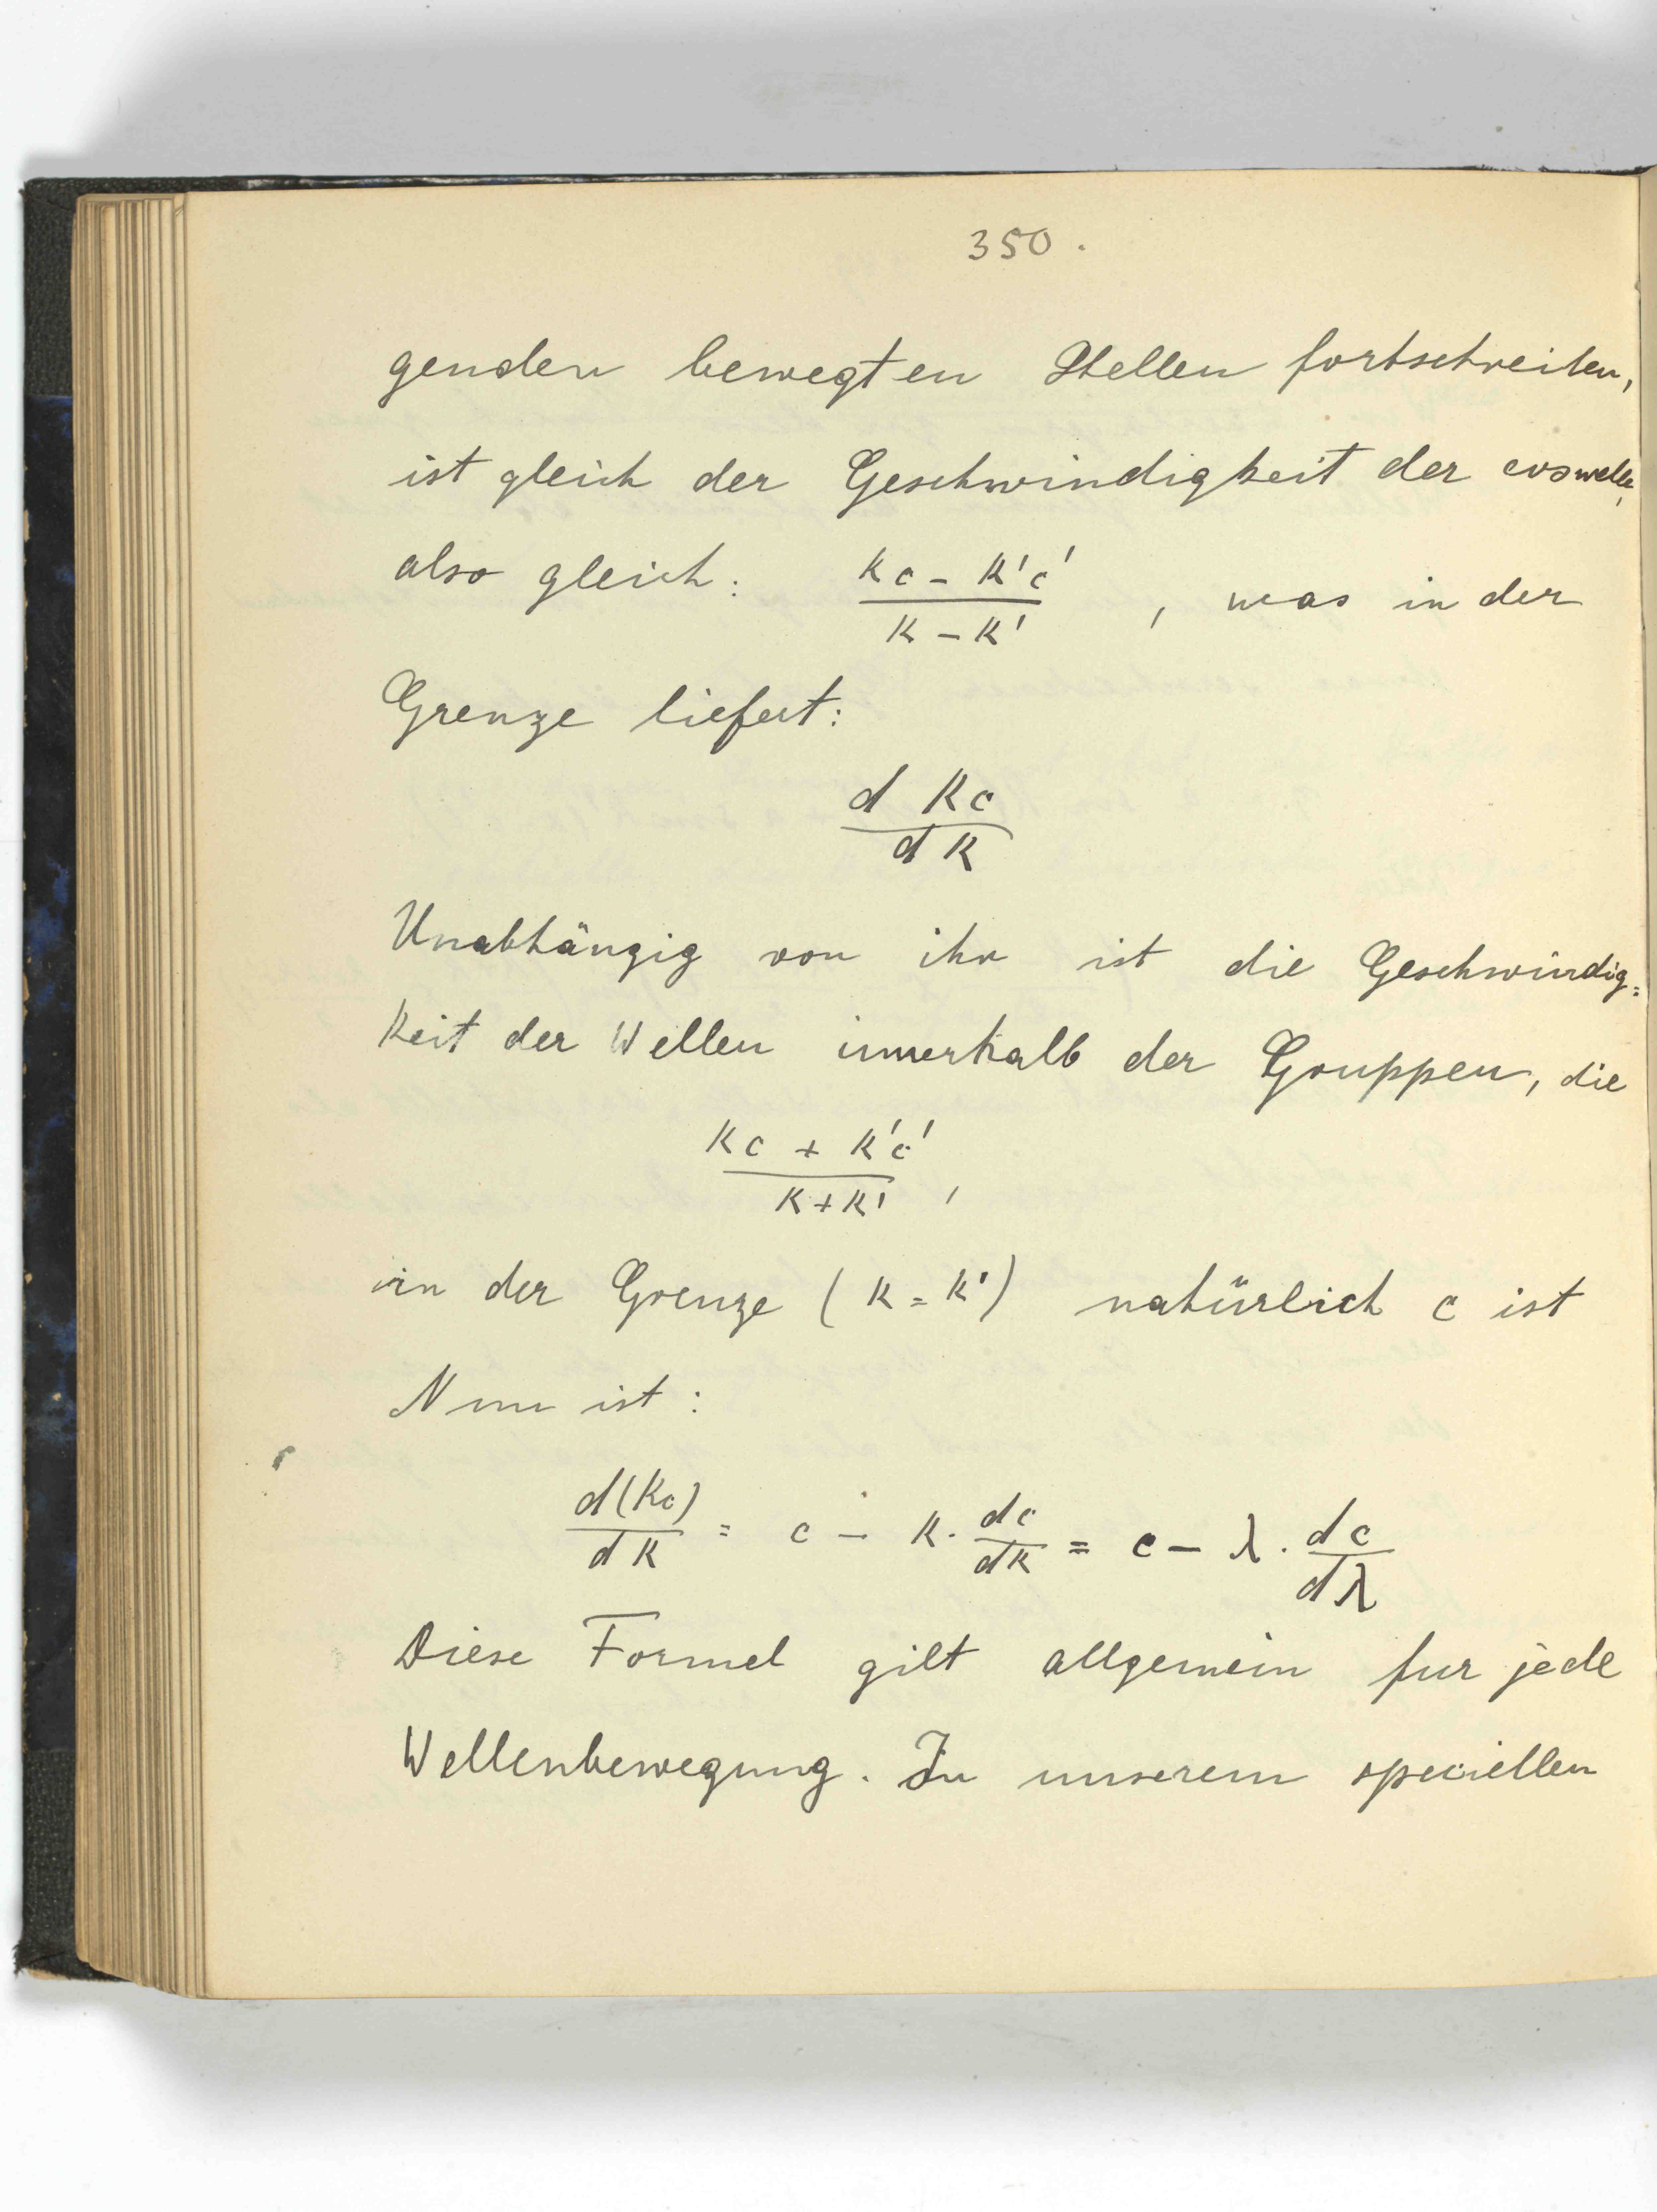 350.
genden bewegten Stellen fortschreiten,
ist gleich der Geschwindigkeit der coswelle,
also gleich: (kc - k'c') / (k - k') , was in der
Grenze liefert:
d kc / d k
Unabhängig von ihr ist die Geschwindig=
keit der Wellen innerhalb der Gruppen, die
(kc + k'c') / (k + k') ,
in der Grenze (k = k') natürlich c ist
Nun ist:
d(kc) / dk = c - k · dc/dk = c - λ · dc/dλ
Diese Formel gilt allgemein fur jede
Wellenbewegung. In unserem speciellen